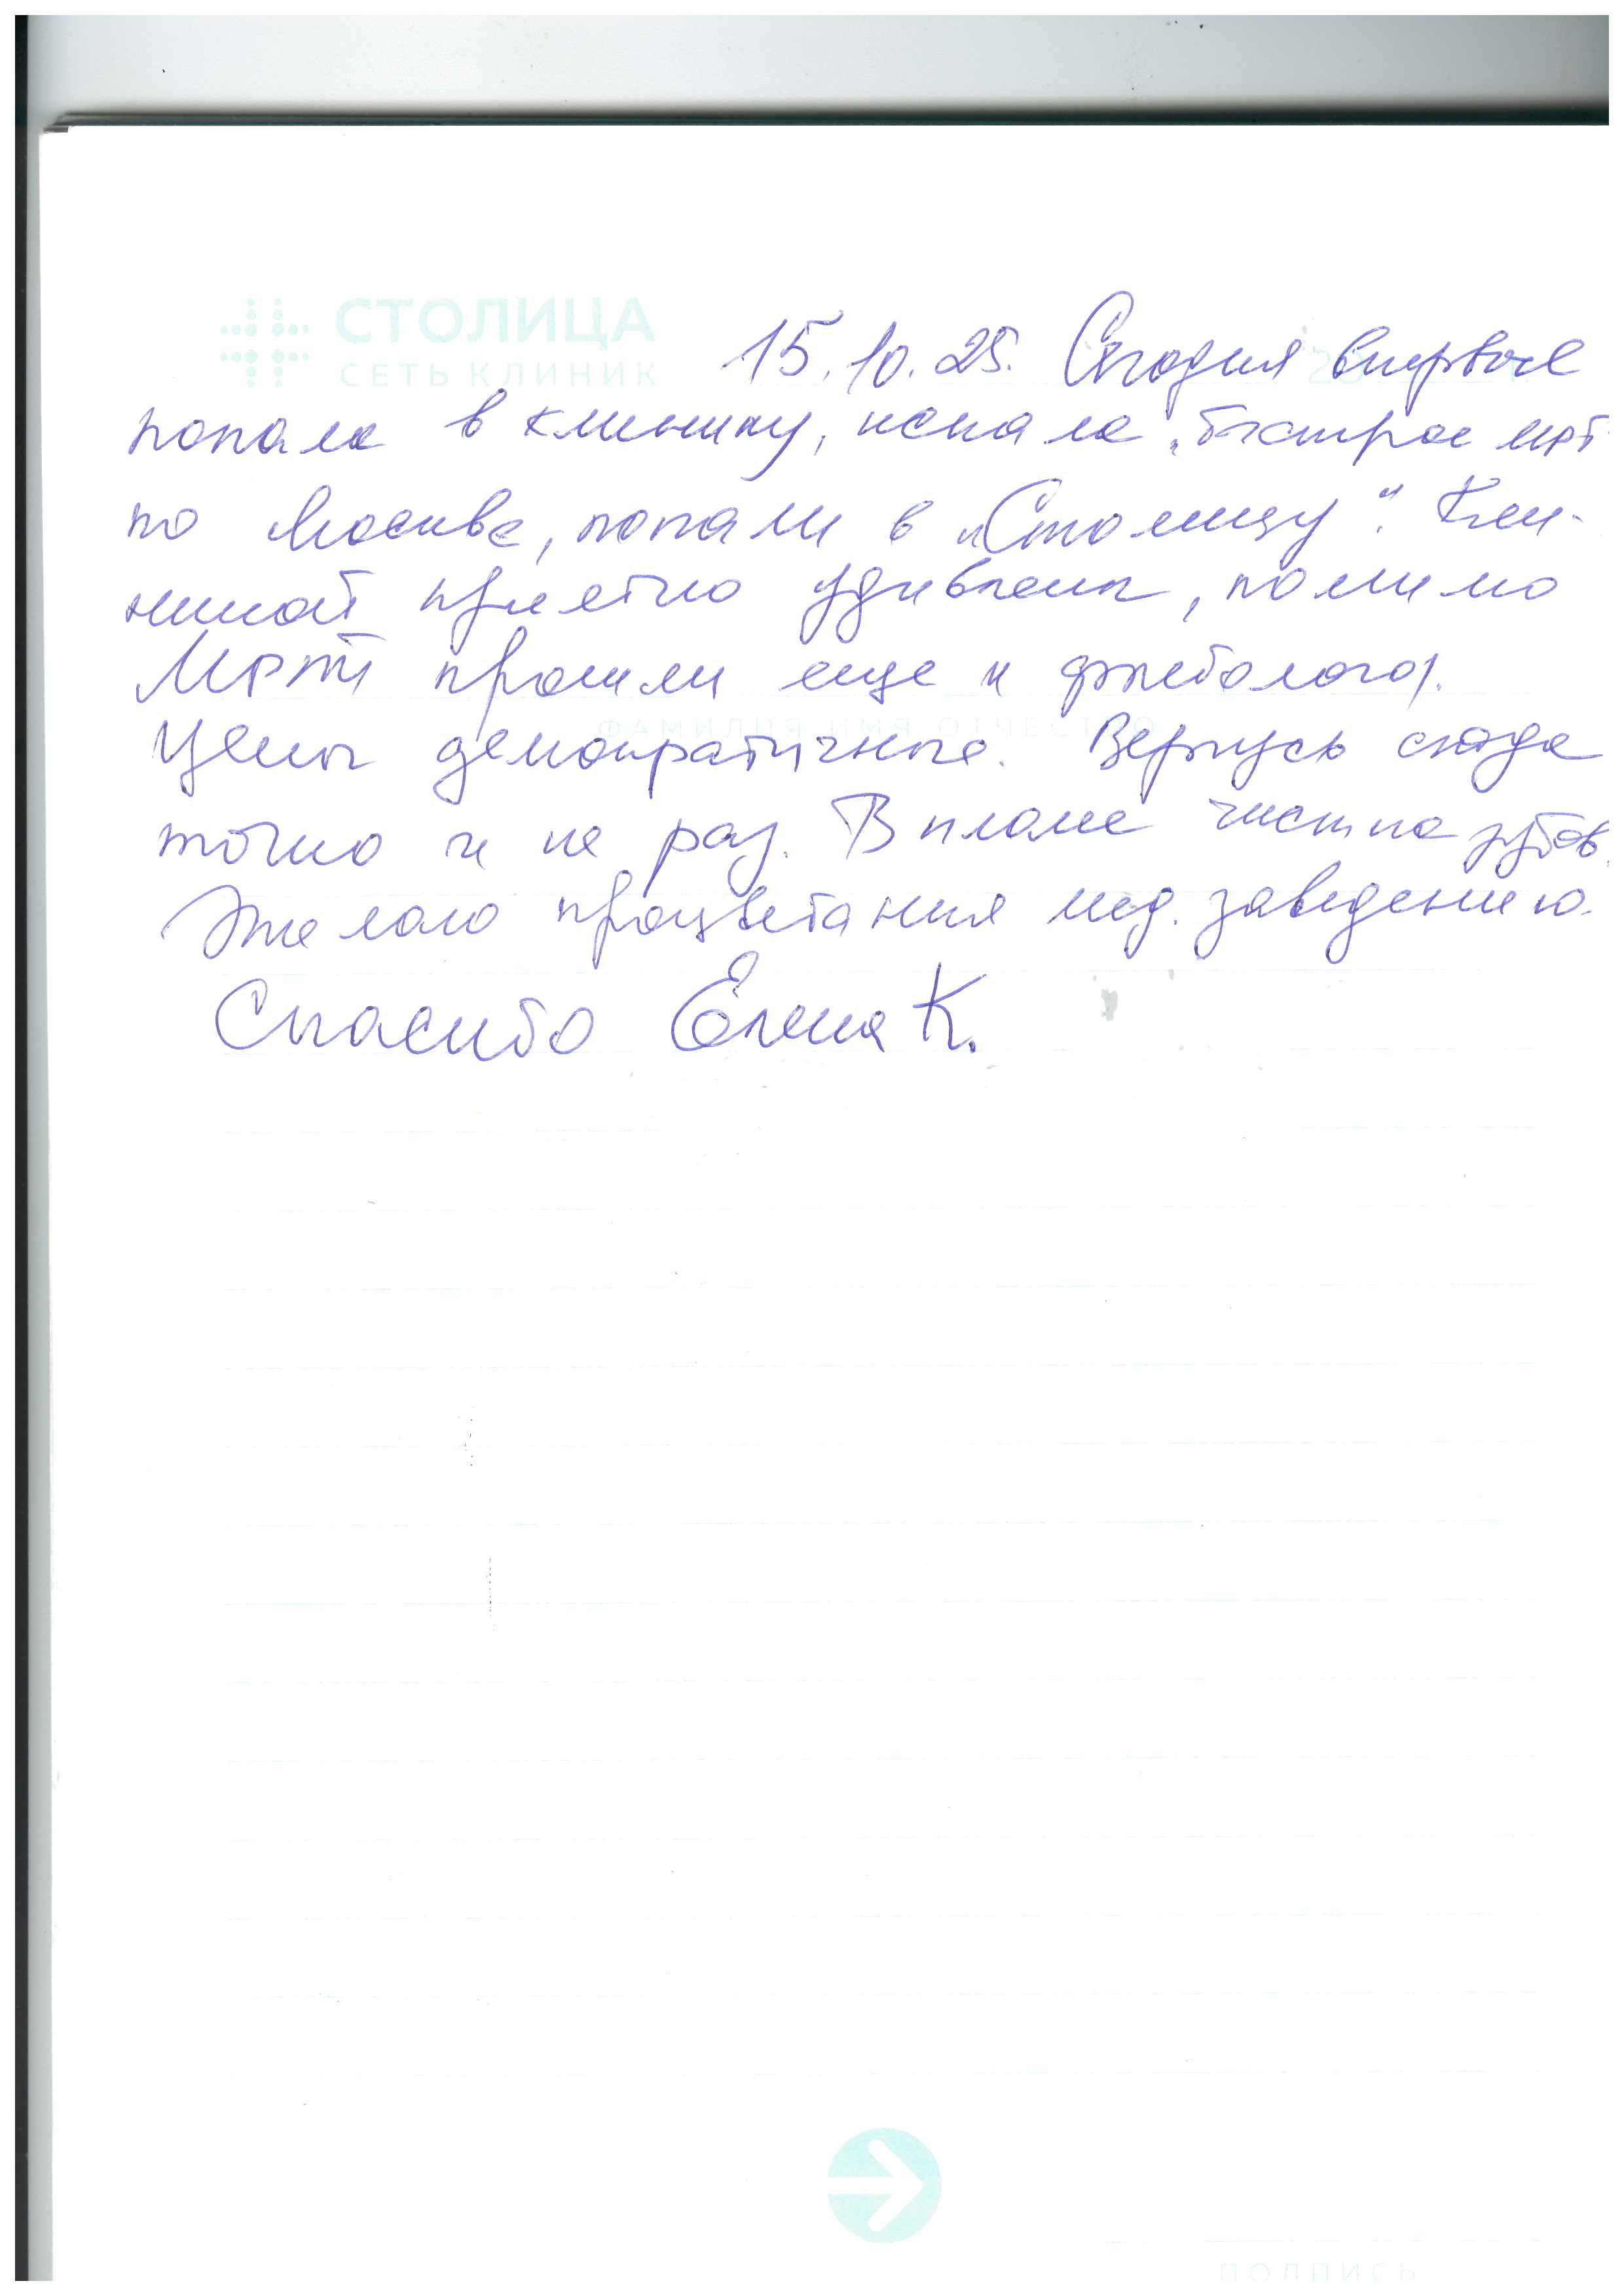 СТОЛИЦА
СЕТЬ КЛИНИК
15.10.25. Сегодня впервые
попала в клинику, искала "быстрое мрт
по Москве, попали в "Столицу". Кли-
никой приятно удивлены, помимо
МРТ прошли еще и флеболога.
ФАМИЛИЯ ИМЯ ОТЧЕСТВО
Цены демократичные. Вернусь сюда
точно и не раз. В плане чистка зубов.
Желаю процветания мед. заведению.
Спасибо Елена К.
ПОДПИСЬ